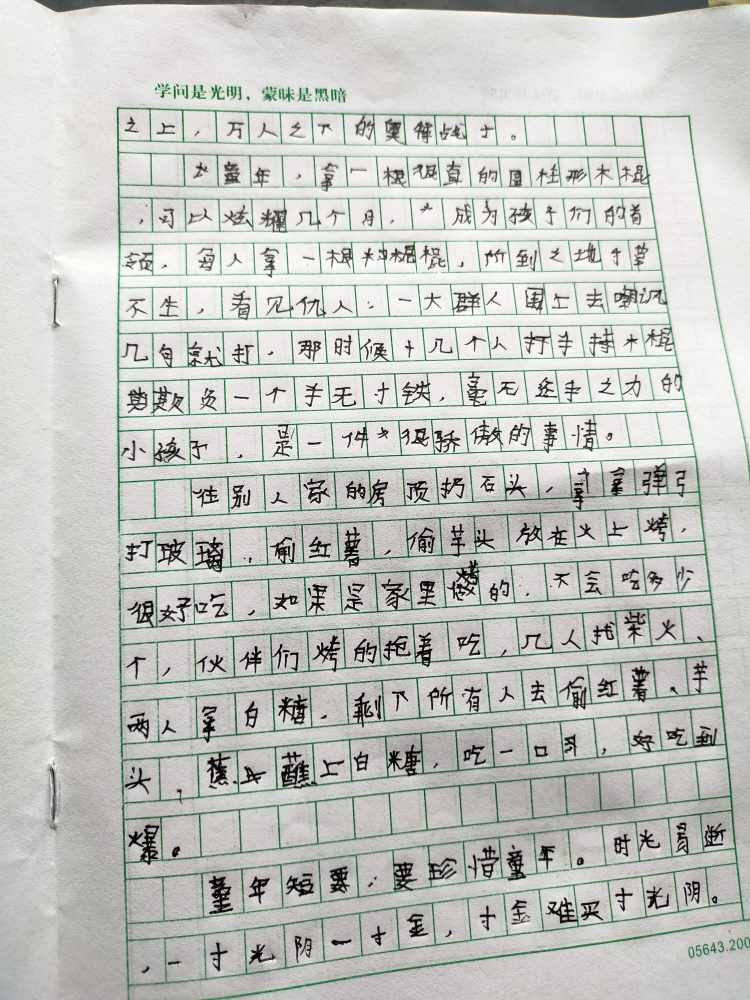 学问是光明，蒙昧是黑暗
之上，万人之下的奥特战士。
童年，拿一根很直的圆柱形木棍
，可以炫耀几个月，成为孩子们的首
领，每人拿一根木棍，所到之地寸草
不生，看见仇人，一大群人围上去嘲讽
几句就打，那时候十几个人打手持木棍
欺负一个手无寸铁，毫无还手之力的
小孩子，是一件很骄傲的事情。
往别人家的房顶扔石头，拿弹弓
打玻璃，偷红薯，偷芋头放在火上烤，
很好吃，如果是家里烤的，不会吃多少
个，伙伴们烤的抢着吃，几人找柴火、
两人拿白糖，剩下所有人去偷红薯、芋
头，蘸上白糖，吃一口斗，好吃到
爆。
童年短要，要珍惜童年。时光易逝
，一寸光阴一寸金，寸金难买寸光阴。
05643.200